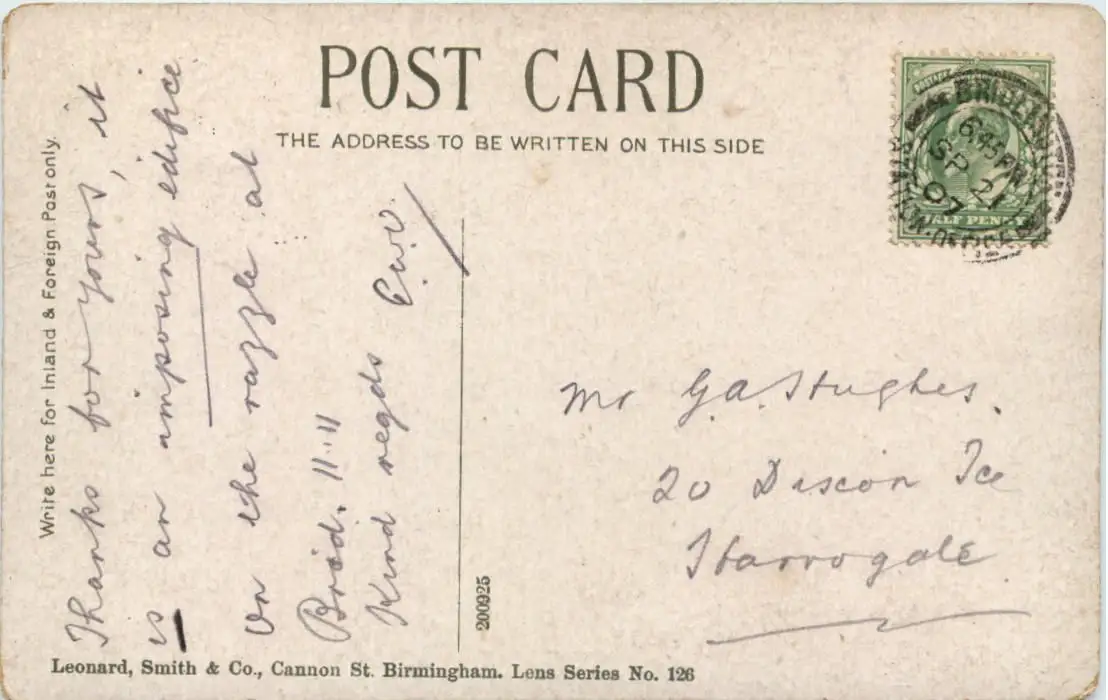 POST CARD
THE ADDRESS TO BE WRITTEN ON THIS SIDE
Write here for Inland & Foreign Post only.
Thanks for yours, it
is an imposing edifice.
On the razzle at
Brid. 11.11
Kind regds
Mr G.A. Hughes.
20 Tce
Harrogate
200925
Leonard, Smith & Co., Cannon St. Birmingham. Lens Series No. 126
POSTAGE
HALF PENNY
6.45 PM
SP 21
07